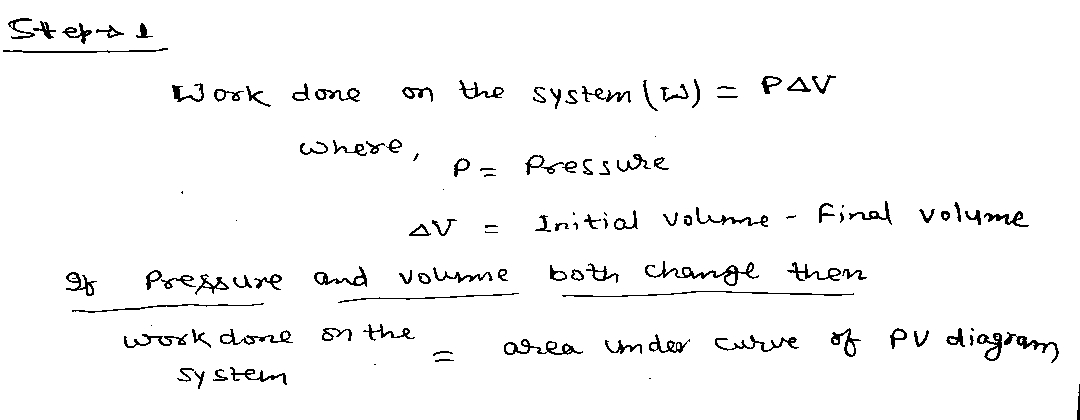 Step→1
Work done on the system (W) = PΔV
where,
P = Pressure
ΔV = Initial volume - Final volume
If Pressure and volume both change then
work done on the system = area under curve of PV diagram